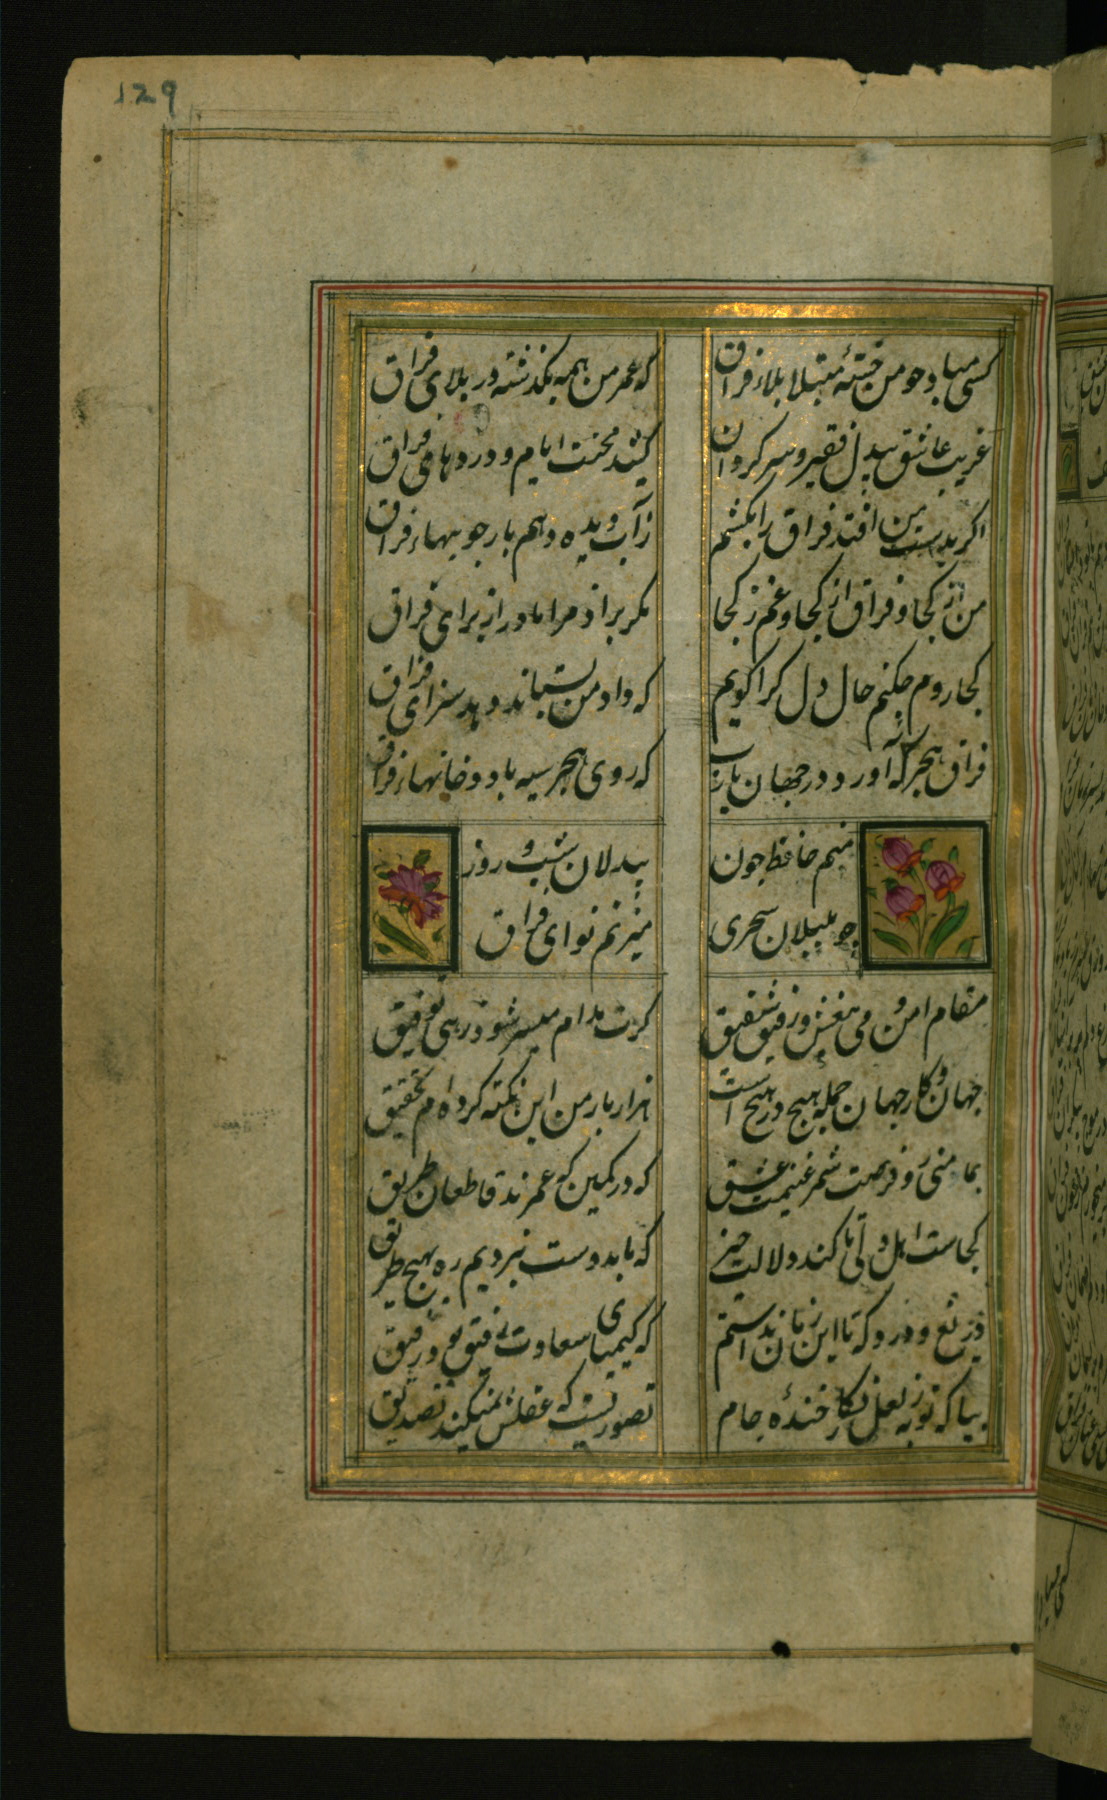 129
کسی مباد چو من خسته مبتلا بلاء فراق
که عمر من همه بگذشته در بلای فراق
غریب عاشق بیدل فقیر و سرکردان
کشید محنت ایام و دردهای فراق
اکر بدست من افتد فراق را بکشم
زآب دیده دهم بار جو بهاء فراق
من از کجا و فراق از کجا و غم ز کجا
مکر بزاد مرا مادر از برای فراق
کجا روم چکنم حال دل کرا کویم
که داد من بستاند دهد سزای فراق
فراق هجر که آورد در جهان یارب
که روی هجر سیه باد و خانهاء فراق
منم حافظ چون
بیدلان شب و روز
چو بلبلان سحری
میزنم نوای فراق
مقام امن و می بیغش و رفیق شفیق
کرت مدام میسر شود زهی توفیق
جهان و کار جهان جمله هیچ در هیچ است
هزار بار من این نکته کرده‌ام تحقیق
بمامنی رو فرصت شمر غنیمت عشق
که در کمین که عمرند قاطعان طریق
کجاست اهل دلی تا کند دلالت خیر
که ما بدوست نبردیم ره بهیچ طریق
دریغ و درد که تا این زمان ندانستم
که کیمیای سعادت رفیق بود رفیق
بیا که توبه ز لعل نکار خنده جام
تصوریست که عقلش نمیکند تصدیق